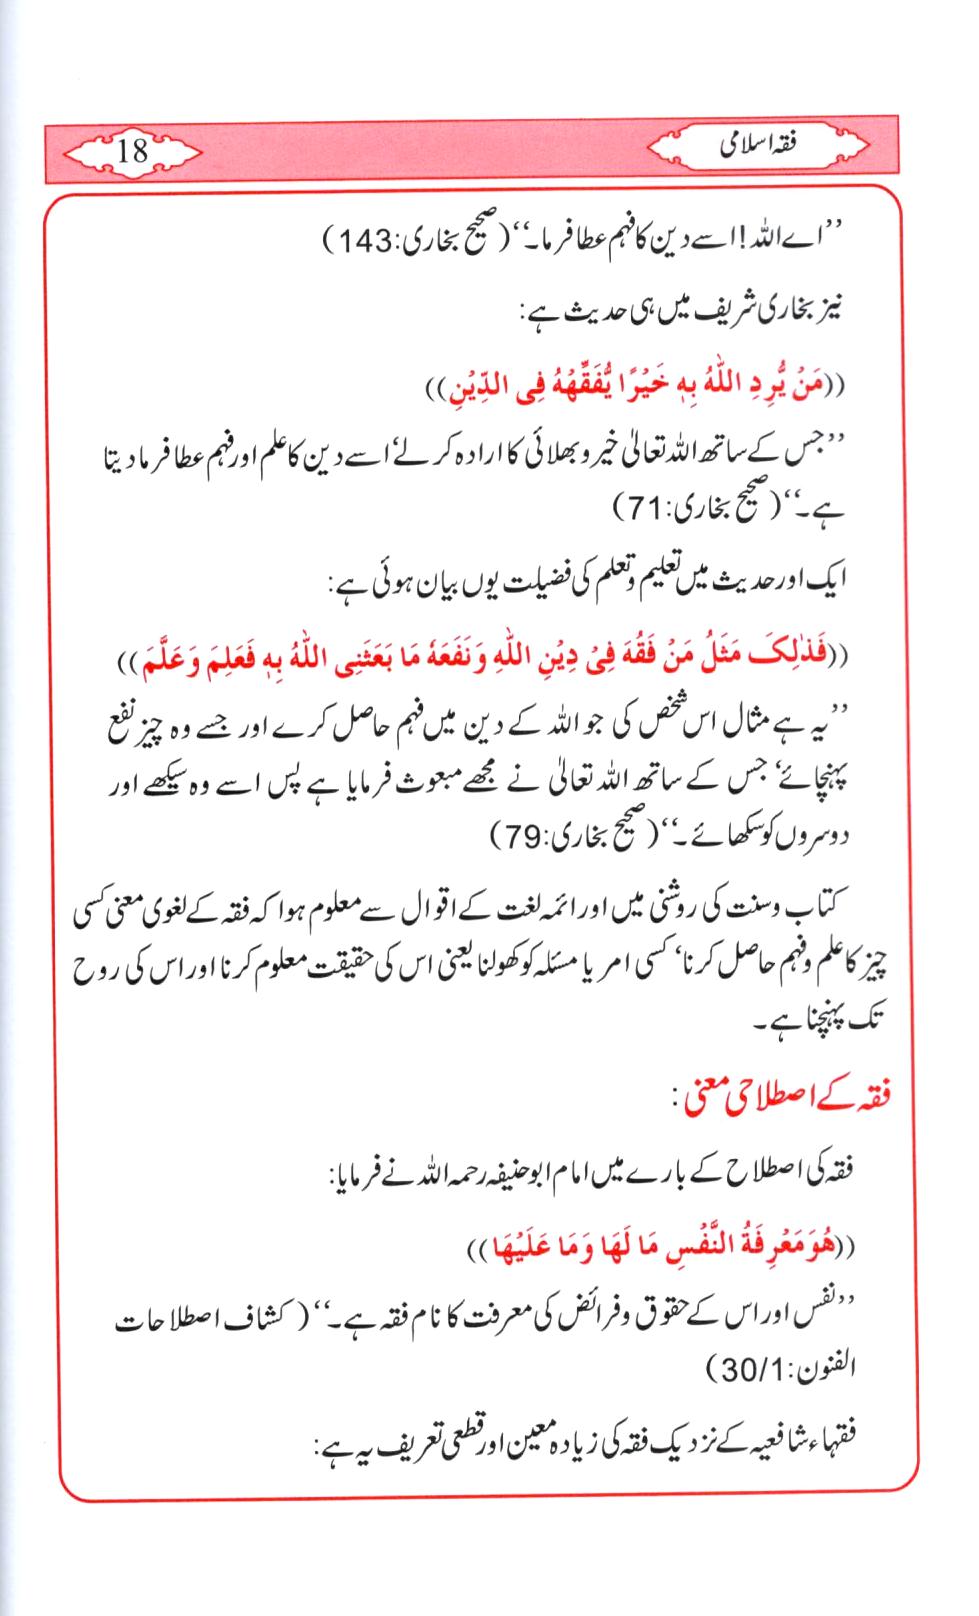 فقہ اسلامی
18
’’اے اللہ! اسے دین کا فہم عطا فرما۔‘‘ (صحیح بخاری:143)
نیز بخاری شریف میں ہی حدیث ہے:
((مَنْ یُّرِدِ اللّٰہُ بِہٖ خَیْرًا یُّفَقِّھْہُ فِی الدِّیْنِ))
’’جس کے ساتھ اللہ تعالیٰ خیر و بھلائی کا ارادہ کرلے‘ اسے دین کا علم اور فہم عطا فرما دیتا
ہے۔‘‘ (صحیح بخاری:71)
ایک اور حدیث میں تعلیم و تعلم کی فضیلت یوں بیان ہوئی ہے:
((فَذٰلِکَ مَثَلُ مَنْ فَقُہَ فِیْ دِیْنِ اللّٰہِ وَنَفَعَہٗ مَا بَعَثَنِی اللّٰہُ بِہٖ فَعَلِمَ وَعَلَّمَ))
’’یہ ہے مثال اس شخص کی جو اللہ کے دین میں فہم حاصل کرے اور جسے وہ چیز نفع
پہنچائے‘ جس کے ساتھ اللہ تعالیٰ نے مجھے مبعوث فرمایا ہے پس اسے وہ سیکھے اور
دوسروں کو سکھائے۔‘‘ (صحیح بخاری:79)
کتاب و سنت کی روشنی میں اور ائمہ لغت کے اقوال سے معلوم ہوا کہ فقہ کے لغوی معنی کسی
چیز کا علم و فہم حاصل کرنا‘ کسی امر یا مسئلہ کو کھولنا یعنی اس کی حقیقت معلوم کرنا اور اس کی روح
تک پہنچنا ہے۔
فقہ کے اصطلاحی معنی:
فقہ کی اصطلاح کے بارے میں امام ابوحنیفہ رحمہ اللہ نے فرمایا:
((ھُوَ مَعْرِفَۃُ النَّفْسِ مَا لَھَا وَمَا عَلَیْھَا))
’’نفس اور اس کے حقوق و فرائض کی معرفت کا نام فقہ ہے۔‘‘ (کشاف اصطلاحات
الفنون:30/1)
فقہاء شافعیہ کے نزدیک فقہ کی زیادہ معین اور قطعی تعریف یہ ہے: